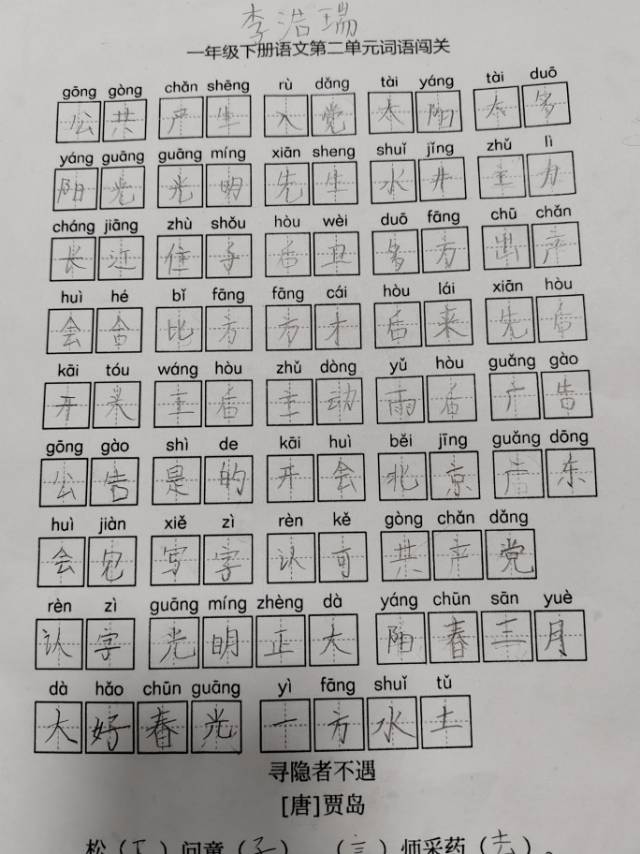 李浩瑞
一年级下册语文第二单元词语闯关
gōng gòng chǎn shēng rù dǎng tài yáng tài duō
公共 产生 入党 太阳 太多
yáng guāng guāng míng xiān sheng shuǐ jǐng zhǔ lì
阳光 光明 先生 水井 主力
cháng jiāng zhù shǒu hòu wèi duō fāng chū chǎn
长江 住手 后卫 多方 出产
huì hé bǐ fāng fāng cái hòu lái xiān hòu
会合 比方 方才 后来 先后
kāi tóu wáng hòu zhǔ dòng yǔ hòu guǎng gào
开 王后 主动 雨后 广告
gōng gào shì de kāi huì běi jīng guǎng dōng
公告 是的 开会 北京 广东
huì jiàn xiě zì rèn kě gòng chǎn dǎng
会 写字 认可 共产党
rèn zì guāng míng zhèng dà yáng chūn sān yuè
认字 光明正大 阳春三月
dà hǎo chūn guāng yì fāng shuǐ tǔ
大好春光 一方水土
寻隐者不遇
[唐]贾岛
松（下）问童（子），（言）师采药（去）。